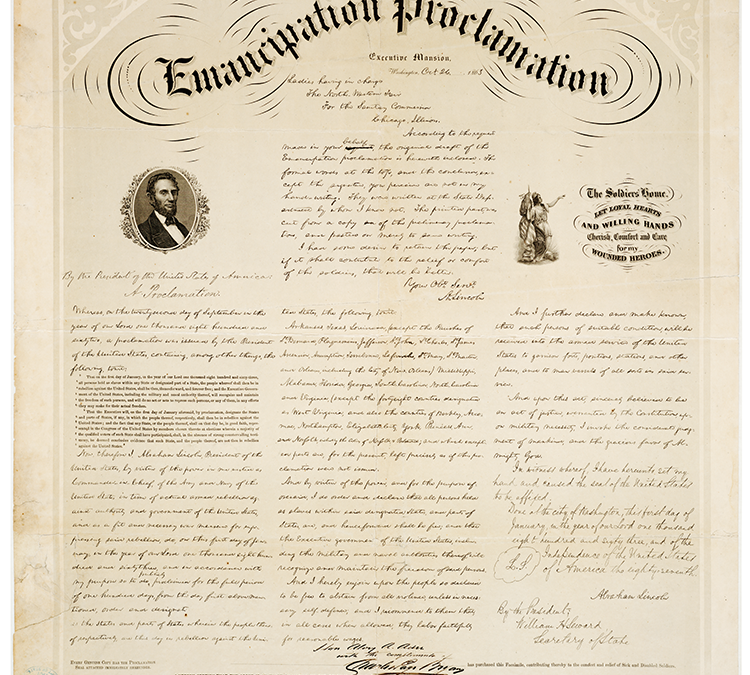 Emancipation Proclamation
Executive Mansion,
Washington, Oct 26, 1863
Ladies having in charge
The North Western Fair
For the Sanitary Commission
Chicago, Illinois.
According to the request
made in your behalf, the original draft of the
Emancipation proclamation is herewith enclosed. The
formal words at the top, and the conclusion, ex-
cept the signature, you perceive are not in my
hand-writing. They were written at the State Dep-
artment by whom I know not. The printed part was
cut from a copy of the preliminary proclama-
tion, and pasted on merely to save writing.
I have some desire to retain the paper; but
if it shall contribute to the relief or comfort
of the soldiers, that will be better.
Your Obt. Servt.
A. Lincoln
The Soldiers' Home.
LET LOYAL HEARTS
AND WILLING HANDS
Cherish, Comfort and Care
for my
WOUNDED HEROES.
By the President of the United States of America:
A Proclamation.
Whereas, on the twentysecond day of September, in the
year of our Lord one thousand eight hundred and
sixtytwo, a proclamation was issued by the President
of the United States, containing, among other things, the
following, towit:
"That on the first day of January, in the year of our Lord one thousand eight hundred and sixty-three,
all persons held as slaves within any State or designated part of a State, the people whereof shall then be in
rebellion against the United States, shall be then, thenceforward, and forever free; and the Executive Govern-
ment of the United States, including the military and naval authority thereof, will recognize and maintain
the freedom of such persons, and will do no act or acts to repress such persons, or any of them, in any efforts
they may make for their actual freedom.
"That the Executive will, on the first day of January aforesaid, by proclamation, designate the States
and parts of States, if any, in which the people thereof, respectively, shall then be in rebellion against the
United States; and the fact that any State, or the people thereof, shall on that day be, in good faith, repre-
sented in the Congress of the United States by members chosen thereto at elections wherein a majority of
the qualified voters of such State shall have participated, shall, in the absence of strong countervailing testi-
mony, be deemed conclusive evidence that such State, and the people thereof, are not then in rebellion
against the United States."
Now, therefore I, Abraham Lincoln, President of the
United States, by virtue of the power in me vested as
Commander-in-Chief, of the Army and Navy of the
United States, in time of actual armed rebellion ag-
ainst authority, and government of the United States,
and as a fit and necessary war measure for sup-
pressing said rebellion, do, on this first day of Jan-
uary, in the year of our Lord one thousand eight hun-
dred and sixtythree, and in accordance with
my purpose so to do, publicly proclaimed for the full period
of one hundred days, from the day first above men-
tioned, order and designate
as the States and parts of States wherein the people there-
of respectively, are this day in rebellion against the Uni-
ted States, the following, towit:
Arkansas, Texas, Louisiana, except the Parishes of
St. Bernard, Plaquemines, Jefferson, St. John, St. Charles, St. James
Ascension, Assumption, Terrebonne, Lafourche, St. Mary, St. Martin,
and Orleans, including the City of New Orleans) Mississippi,
Alabama, Florida, Georgia, South-Carolina, North-Carolina,
and Virginia, (except the fortyeight counties designated
as West Virginia, and also the counties of Berkley, Acco-
mac, Northampton, Elizabeth-City, York, Princess Ann,
and Norfolk, including the cities of Norfolk & Portsmouth); and which except-
ed parts are, for the present, left precisely as if this pro-
clamation were not issued.
And by virtue of the power, and for the purpose af-
oresaid, I do order and declare that all persons held
as slaves within said designated States, and parts of
States, are, and henceforward shall be free; and that
the Executive government of the United States, inclu-
ding the military and naval authorities thereof, will
recognize and maintain the freedom of said persons.
And I hereby enjoin upon the people so declared
to be free to abstain from all violence, unless in neces-
sary self-defence; and I recommend to them that,
in all cases when allowed, they labor faithfully
for reasonable wages.
And I further declare and make known,
that such persons of suitable condition, will be
received into the armed service of the United
States to garrison forts, positions, stations, and other
places, and to man vessels of all sorts in said ser-
vice.
And upon this act, sincerely believed to be
an act of justice, warranted by the Constitution, up-
on military necessity, I invoke the considerate judg-
ment of mankind, and the gracious favor of Al-
mighty God.
In witness whereof, I have hereunto set my
hand and caused the seal of the United States
to be affixed.
Done at the city of Washington, this first day of
January, in the year of our Lord one thousand
eight hundred and sixty three, and of the
L.S. Independence of the United States
of America the eighty-seventh.
Abraham Lincoln
By the President;
William H. Seward,
Secretary of State
with the compliments of
EVERY GENUINE COPY HAS THE PROCLAMATION
has purchased this Facsimile, contributing thereby to the comfort and relief of Sick and Disabled Soldiers.